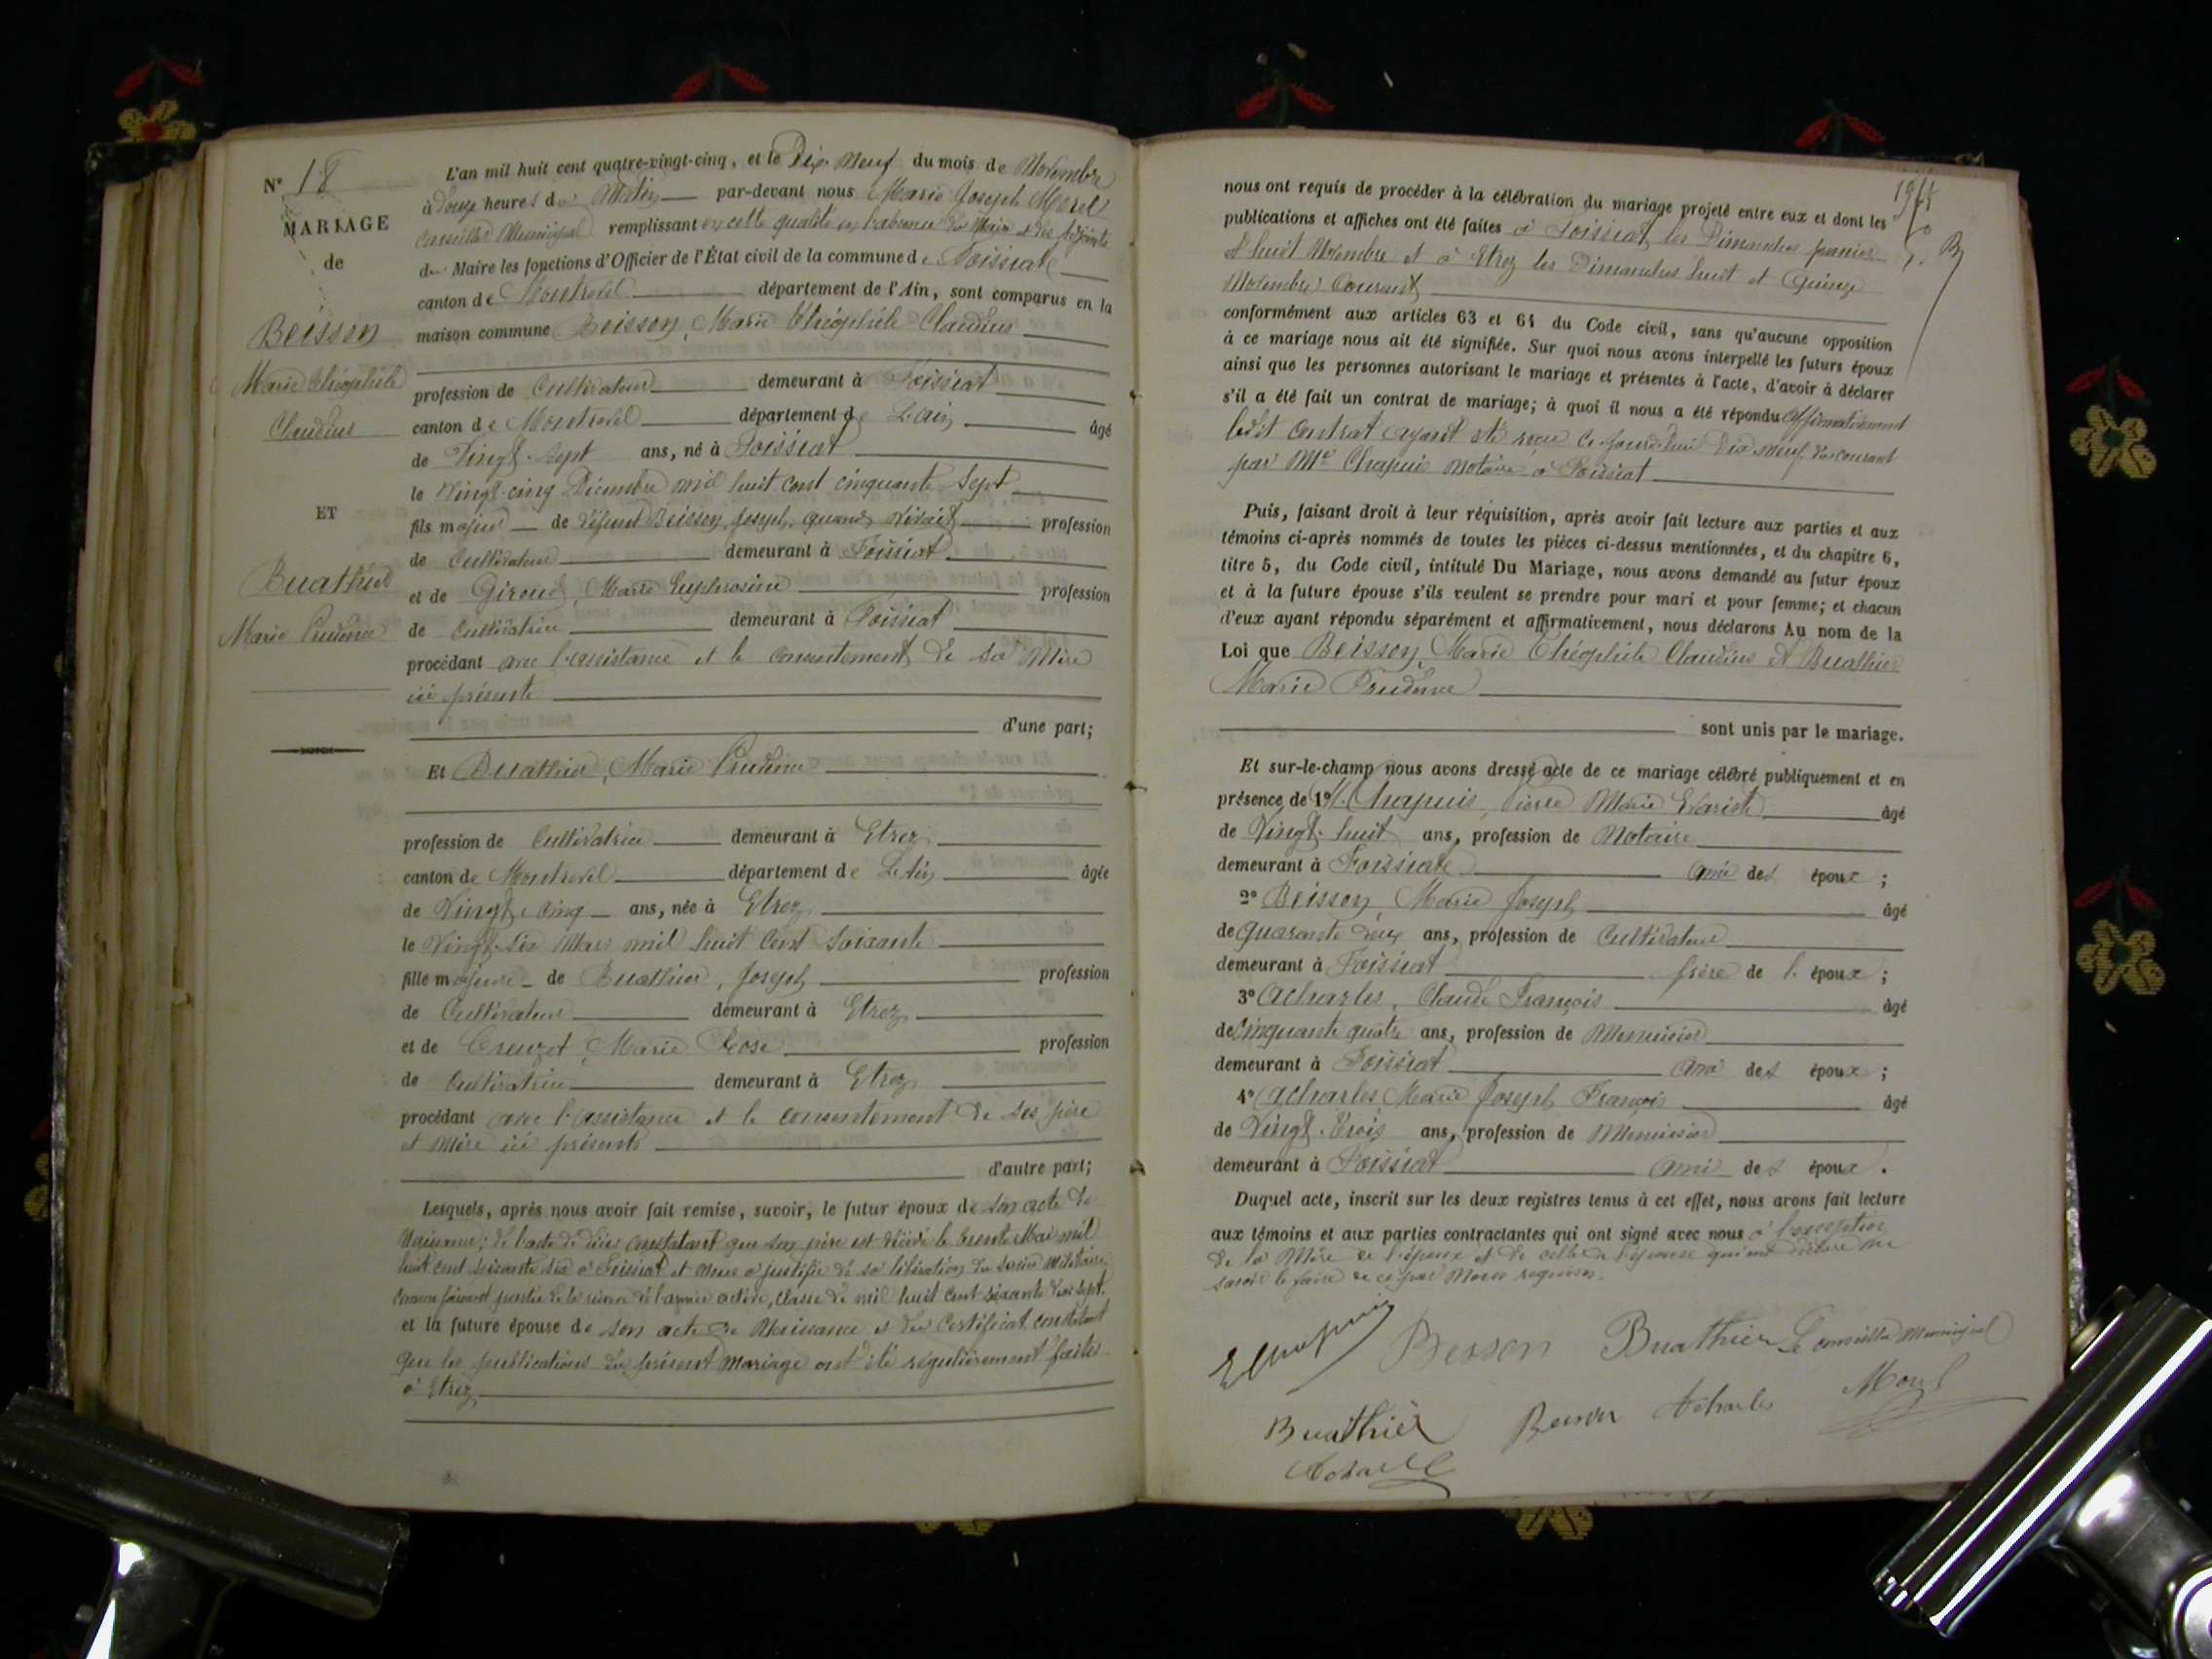 N° 18
MARIAGE
de
Beisson
Marie Théophile
Claudius
ET
Buathier
Marie Prudence
L'an mil huit cent quatre-vingt-cinq, et le Dix-Neuf du mois de Novembre
à douze heures du Matin par-devant nous Marie Joseph Morel
Conseiller Municipal remplissant en cette qualité en l'absence du Maire et des Adjoints
du Maire les fonctions d'Officier de l'État civil de la commune de Foissiat
canton de Montrevel département de l'Ain, sont comparus en la
maison commune Beisson, Marie Théophile Claudius
profession de Cultivateur demeurant à Foissiat
canton de Montrevel département de L'ain âgé
de Vingt-Sept ans, né à Foissiat
le Vingt-cinq Décembre mil huit cent cinquante Sept
fils majeur de défunt Beisson, Joseph, quand vivait profession
de Cultivateur demeurant à Foissiat
et de Giroud, Marie Euphrosine profession
de Cultivatrice demeurant à Foissiat
procédant avec l'assistance et le consentement de sa Mère
ici présente
d'une part;
Et Buathier, Marie Prudence
profession de Cultivatrice demeurant à Etrez
canton de Montrevel département de L'Ain âgée
de Vingt cinq ans, née à Etrez
le Vingt-Six Mars mil huit cent Soixante
fille majeure de Buathier, Joseph profession
de Cultivateur demeurant à Etrez
et de Creuzet, Marie Rose profession
de Cultivatrice demeurant à Etrez
procédant avec l'assistance et le consentement de ses père
et mère ici présents
d'autre part;
Lesquels, après nous avoir fait remise, savoir, le futur époux de son acte de
Naissance; de l'acte de décès constatant que son père est décédé le trente Mai mil
huit cent soixante six à Foissiat et nous a justifié de sa libération du service militaire
comme faisant partie de la réserve de l'armée active, classe de mil huit cent soixante dix sept.
et la future épouse de son acte de Naissance et du Certificat constatant
que les publications du présent mariage ont été régulièrement faites
à Etrez
nous ont requis de procéder à la célébration du mariage projeté entre eux et dont les
publications et affiches ont été faites à Foissiat, les Dimanches premier
et huit Novembre et à Etrez les Dimanches huit et Quinze
Novembre Courant
conformément aux articles 63 et 64 du Code civil, sans qu'aucune opposition
à ce mariage nous ait été signifiée. Sur quoi nous avons interpellé les futurs époux
ainsi que les personnes autorisant le mariage et présentes à l'acte, d'avoir à déclarer
s'il a été fait un contrat de mariage; à quoi il nous a été répondu affirmativement
ledit contrat ayant été reçu ce jourd'hui dix neuf du courant
par Me Chapuis notaire à Foissiat
Puis, faisant droit à leur réquisition, après avoir fait lecture aux parties et aux
témoins ci-après nommés de toutes les pièces ci-dessus mentionnées, et du chapitre 6,
titre 5, du Code civil, intitulé Du Mariage, nous avons demandé au futur époux
et à la future épouse s'ils veulent se prendre pour mari et pour femme; et chacun
d'eux ayant répondu séparément et affirmativement, nous déclarons Au nom de la
Loi que Beisson, Marie Théophile Claudius et Buathier
Marie Prudence
sont unis par le mariage.
Et sur-le-champ nous avons dressé acte de ce mariage célébré publiquement et en
présence de 1° M. Chapuis, Pierre Marie Evariste âgé
de Vingt-huit ans, profession de Notaire
demeurant à Foissiat ami des époux;
2° Beisson, Marie Joseph âgé
de quarante deux ans, profession de Cultivateur
demeurant à Foissiat frère de l'époux;
3° Acharles, Claude François âgé
de Cinquante quatre ans, profession de Menuisier
demeurant à Foissiat ami des époux;
4° Acharles Marie Joseph François âgé
de Vingt-Trois ans, profession de Menuisier
demeurant à Foissiat ami des époux.
Duquel acte, inscrit sur les deux registres tenus à cet effet, nous avons fait lecture
aux témoins et aux parties contractantes qui ont signé avec nous à l'exception
de la Mère de l'époux et de celle de l'épouse qui ont déclaré ne
savoir le faire de ce par Nous requises.
Besson Buathier Le conseiller Municipal
Buathier Besson Acharles Morel